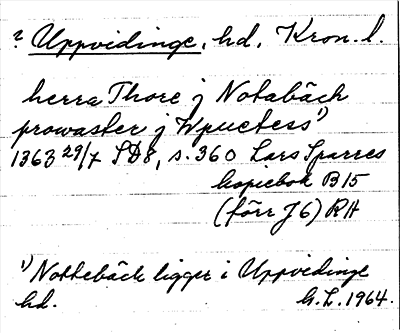 ? Uppvidinge, hd, Kron. l.
herra Thore j Notabäch
prowaster j Wpuetess¹)
1363 29/7 SD8, s. 360 Lars Sparres
kopiebok B 15
(förr J 6) RA
¹) Nottebäck ligger i Uppvidinge
hd. G.L. 1964.